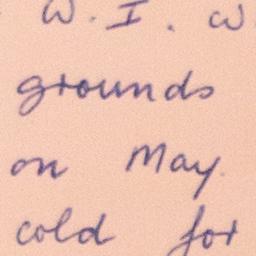 W. I. W
grounds
on May.
cold for